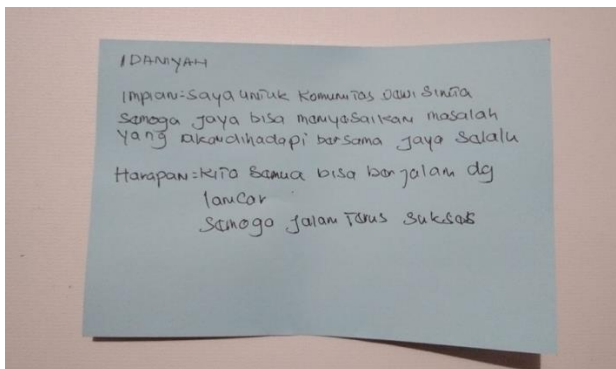 IDANIYAH
Impian = Saya untuk Komunitas Dewi Sinta
Semoga jaya bisa menyesaikan masalah
yang akan dihadapi bersama jaya Selalu
Harapan = Kita Semua bisa berjalan dg
lancar
Semoga jalan Terus Sukses